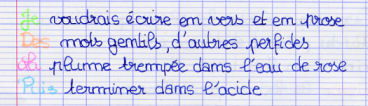 Je voudrais écrire em vers et em prose
Des mots gemtils, d'autres perfides
Ma plume trempée dams l'eau de rose
Puis termimer dams l'acide